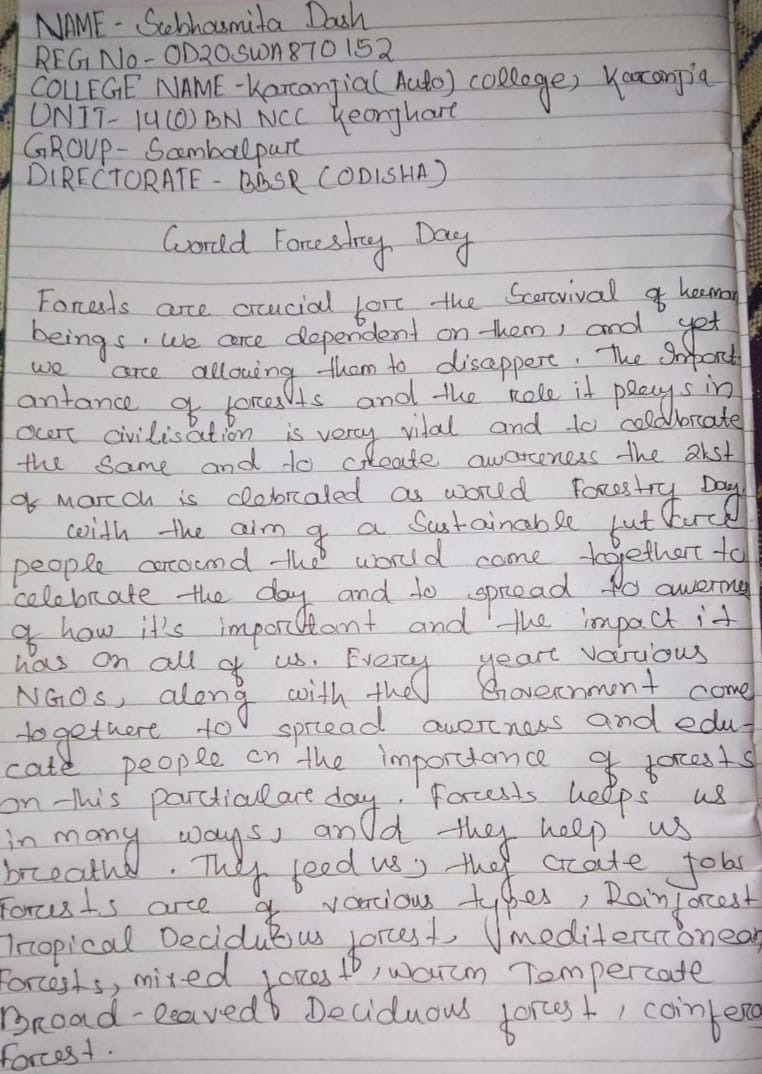 NAME - Subhasmita Dash
REG No - OD20SWA870152
COLLEGE NAME - Karanjia (Auto) college, Karanjia
UNIT- 14(O) BN NCC Keonjhar
GROUP- Sambalpur
DIRECTORATE - BBSR (ODISHA)
World Forestry Day
Forests are crucial for the Survival of human
beings. We are dependent on them, and yet
we are allowing them to disappere. The Import
antance of forests and the role it plays in
our civilisation is very vital and to celabrate
the same and to create awareness the 21st
of March is clebrated as world Forestry Day.
with the aim of a Sustainable future
people around the world come together to
celebrate the day and to spread to
of how it's important and the impact it
has on all of us. Every year various
NGOs, along with the Government come
together to spread awerness and edu-
cate people on the importance of forests
on this particular day. Forests helps us
in many ways, and they help us
breathe. They feed us, they create jobs
Forests are of various types, Rainforest
Tropical Deciduous forest, mediterranean
Forests, mixed forest, warm Temperate
Broad-leaved Deciduous forest, coinfero
Forest.